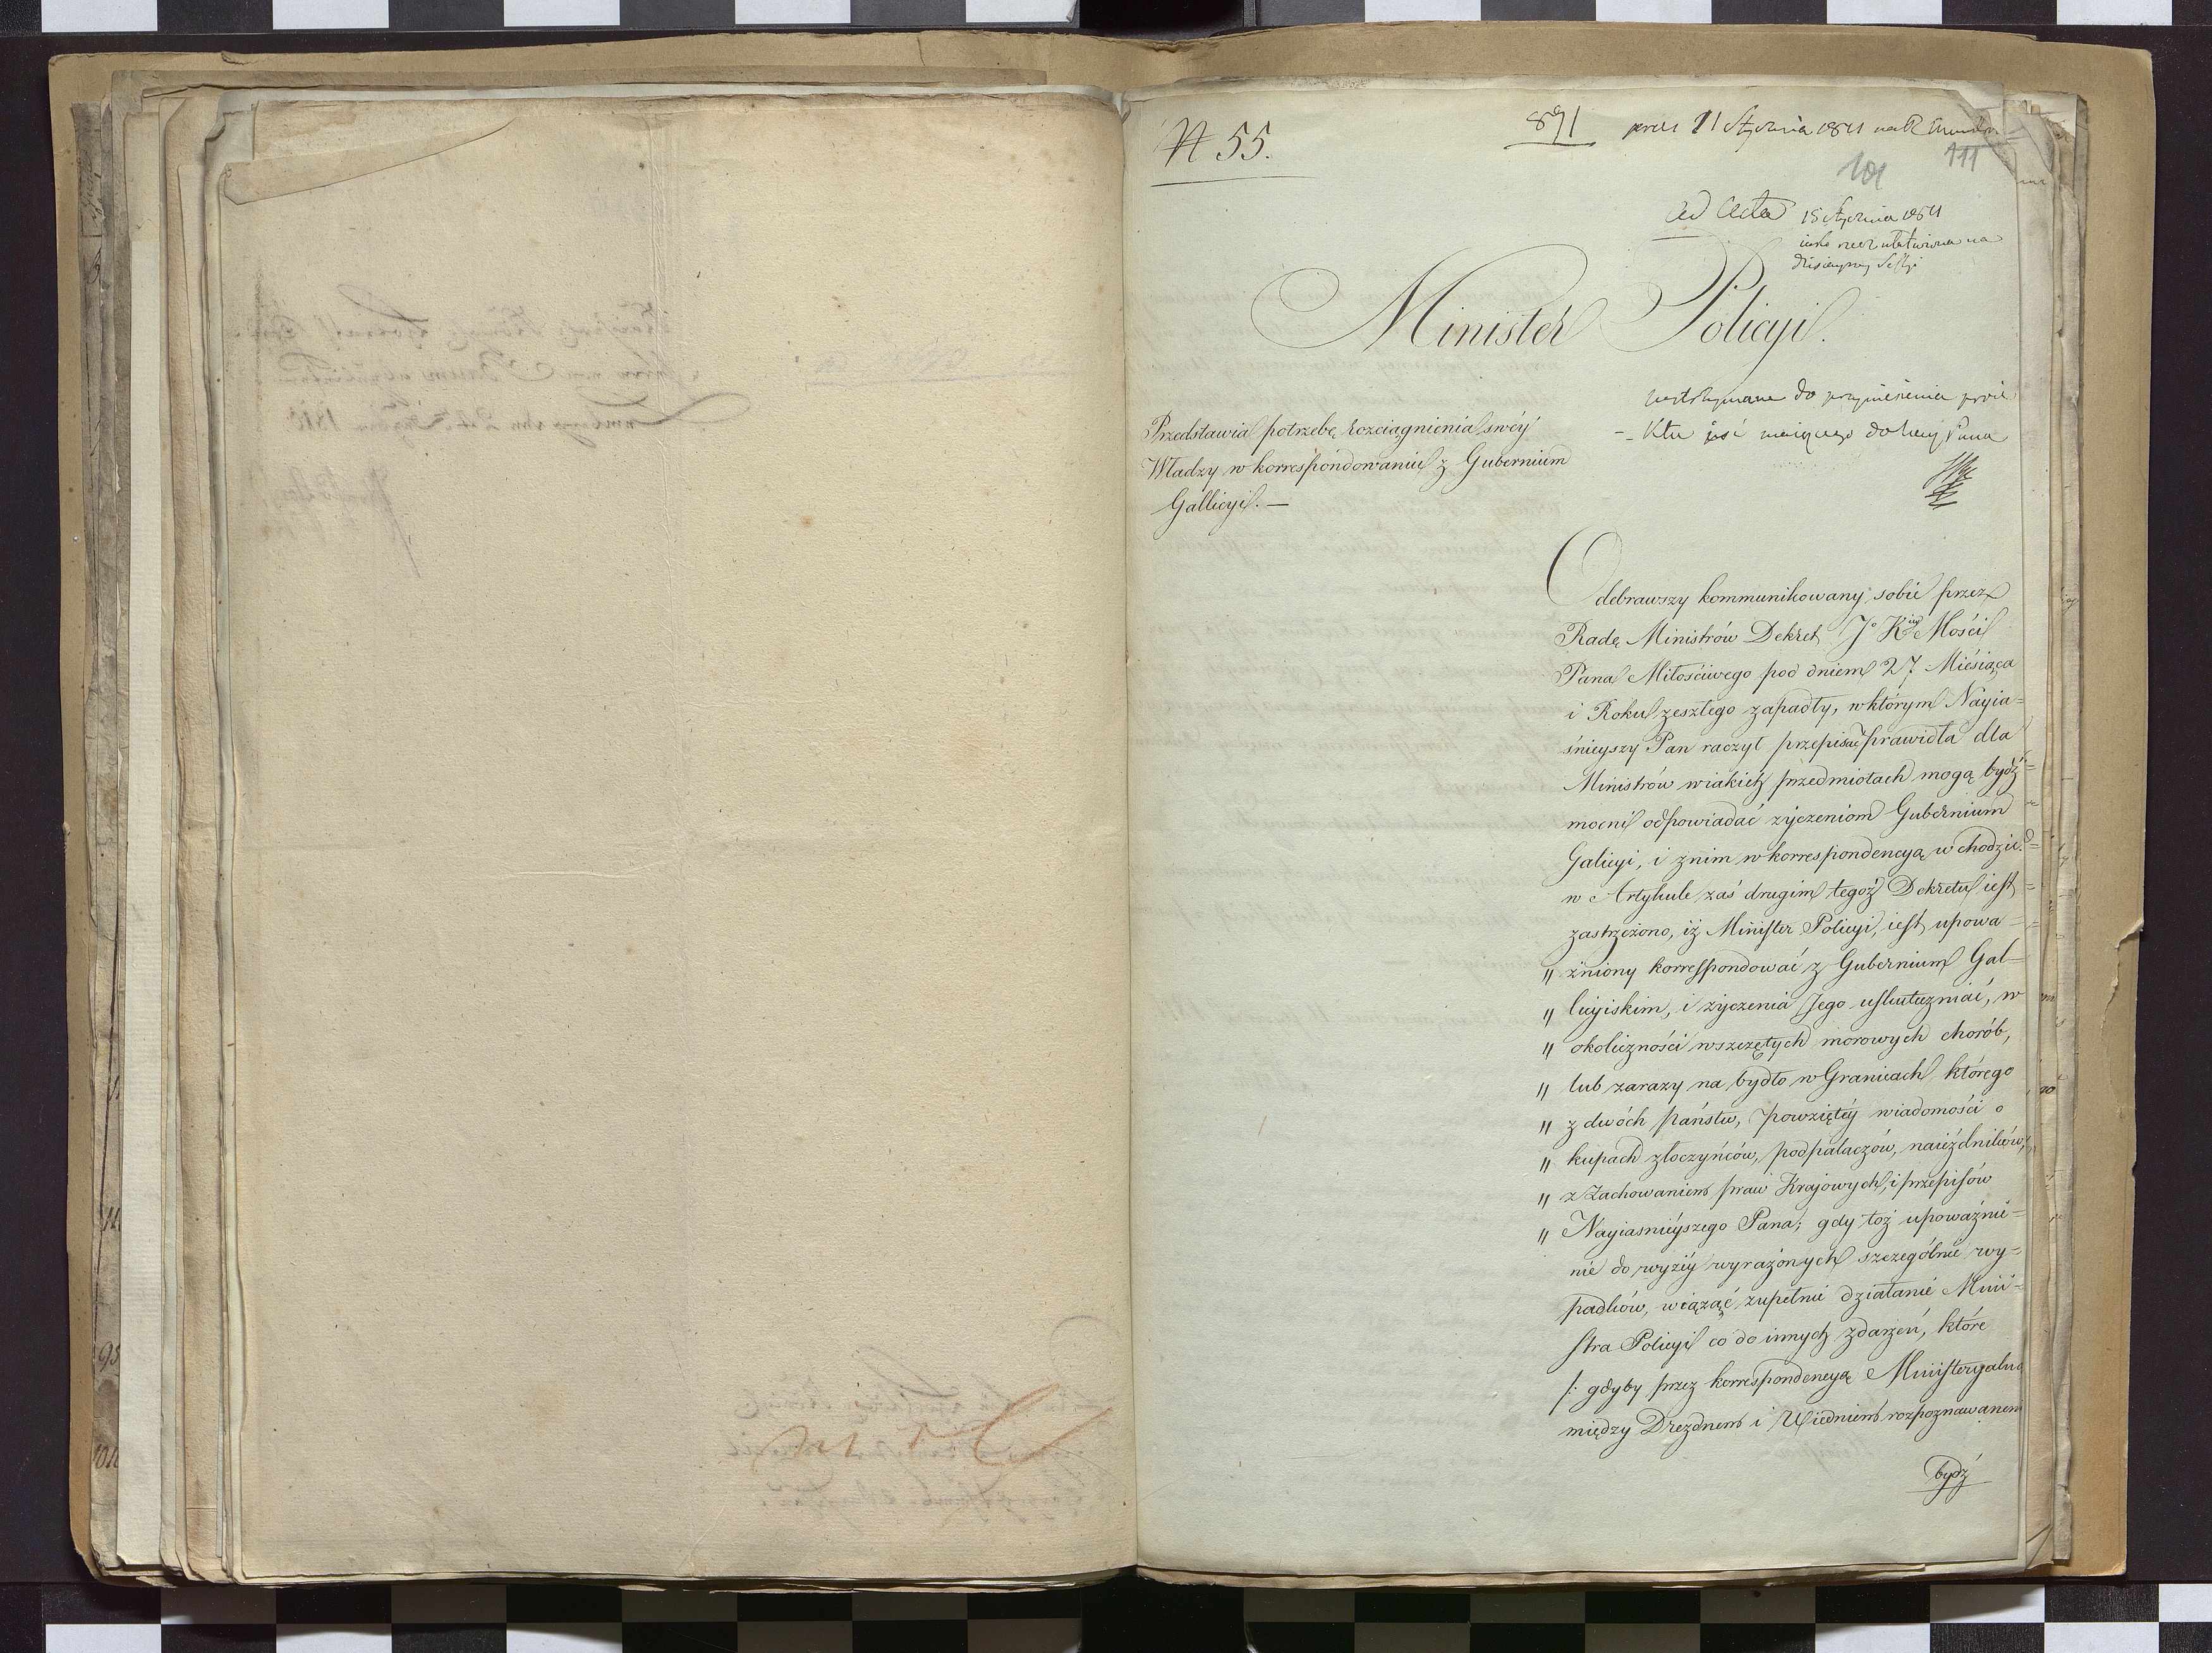 N 55.
891
11 Stycznia 1811
111
101
Ad Acta 15 Stycznia 1811
na
dzisieyszey Sessyi
Minister Policyi.
wstrzymane do przyniesienia proie
ktu iść maiącego do Nayj Pana
Przedstawia potrzebę rozciągnienia swéy
Władzy w korrespondowaniu z Gubernium
Gallicyi. —
Odebrawszy kommunikowany sobie przez
Radę Ministrów Dekret Jº Kréy Mości
Pana Miłościwego pod dniem 27. Miesiąca
i Roku zeszłego zapadły, w którym Nayia=
śnieyszy Pan raczył przepisać prawidła dla
Ministrów w iakich przedmiotach mogą bydź
mocni odpowiadać życzeniom Gubernium
Galicyi, i z nim w korrespondencyą wchodzić.
w Artykule zaś drugim tegoż Dekretu iest
zastrzeżono, iż Minister Policyi, iest upowa=
„ żniony korrespondować z Gubernium Gal=
„ licyiskim, i życzenia Jego uskuteczniać, w
„ okoliczności wszczętych morowych chorób,
„ lub zarazy na bydło w Granicach którego
„ z dwóch państw, powziętéy wiadomości o
„ kupach złoczyńców, podpalaczów, naieźdników,
„ z Zachowaniem praw Krajowych, i przepisów
„ Nayiasnieyszego Pana; gdy toż upoważnie=
nie do wyżéy wyrażonych szczególnie wy=
padków, wiązać zupełnie działanie Mini=
stra Policyi co do innych zdarzeń, które
/: gdyby przez korrespondencyą Ministeryalną
między Dreznem i Wiedniem rozpoznawanem
bydź